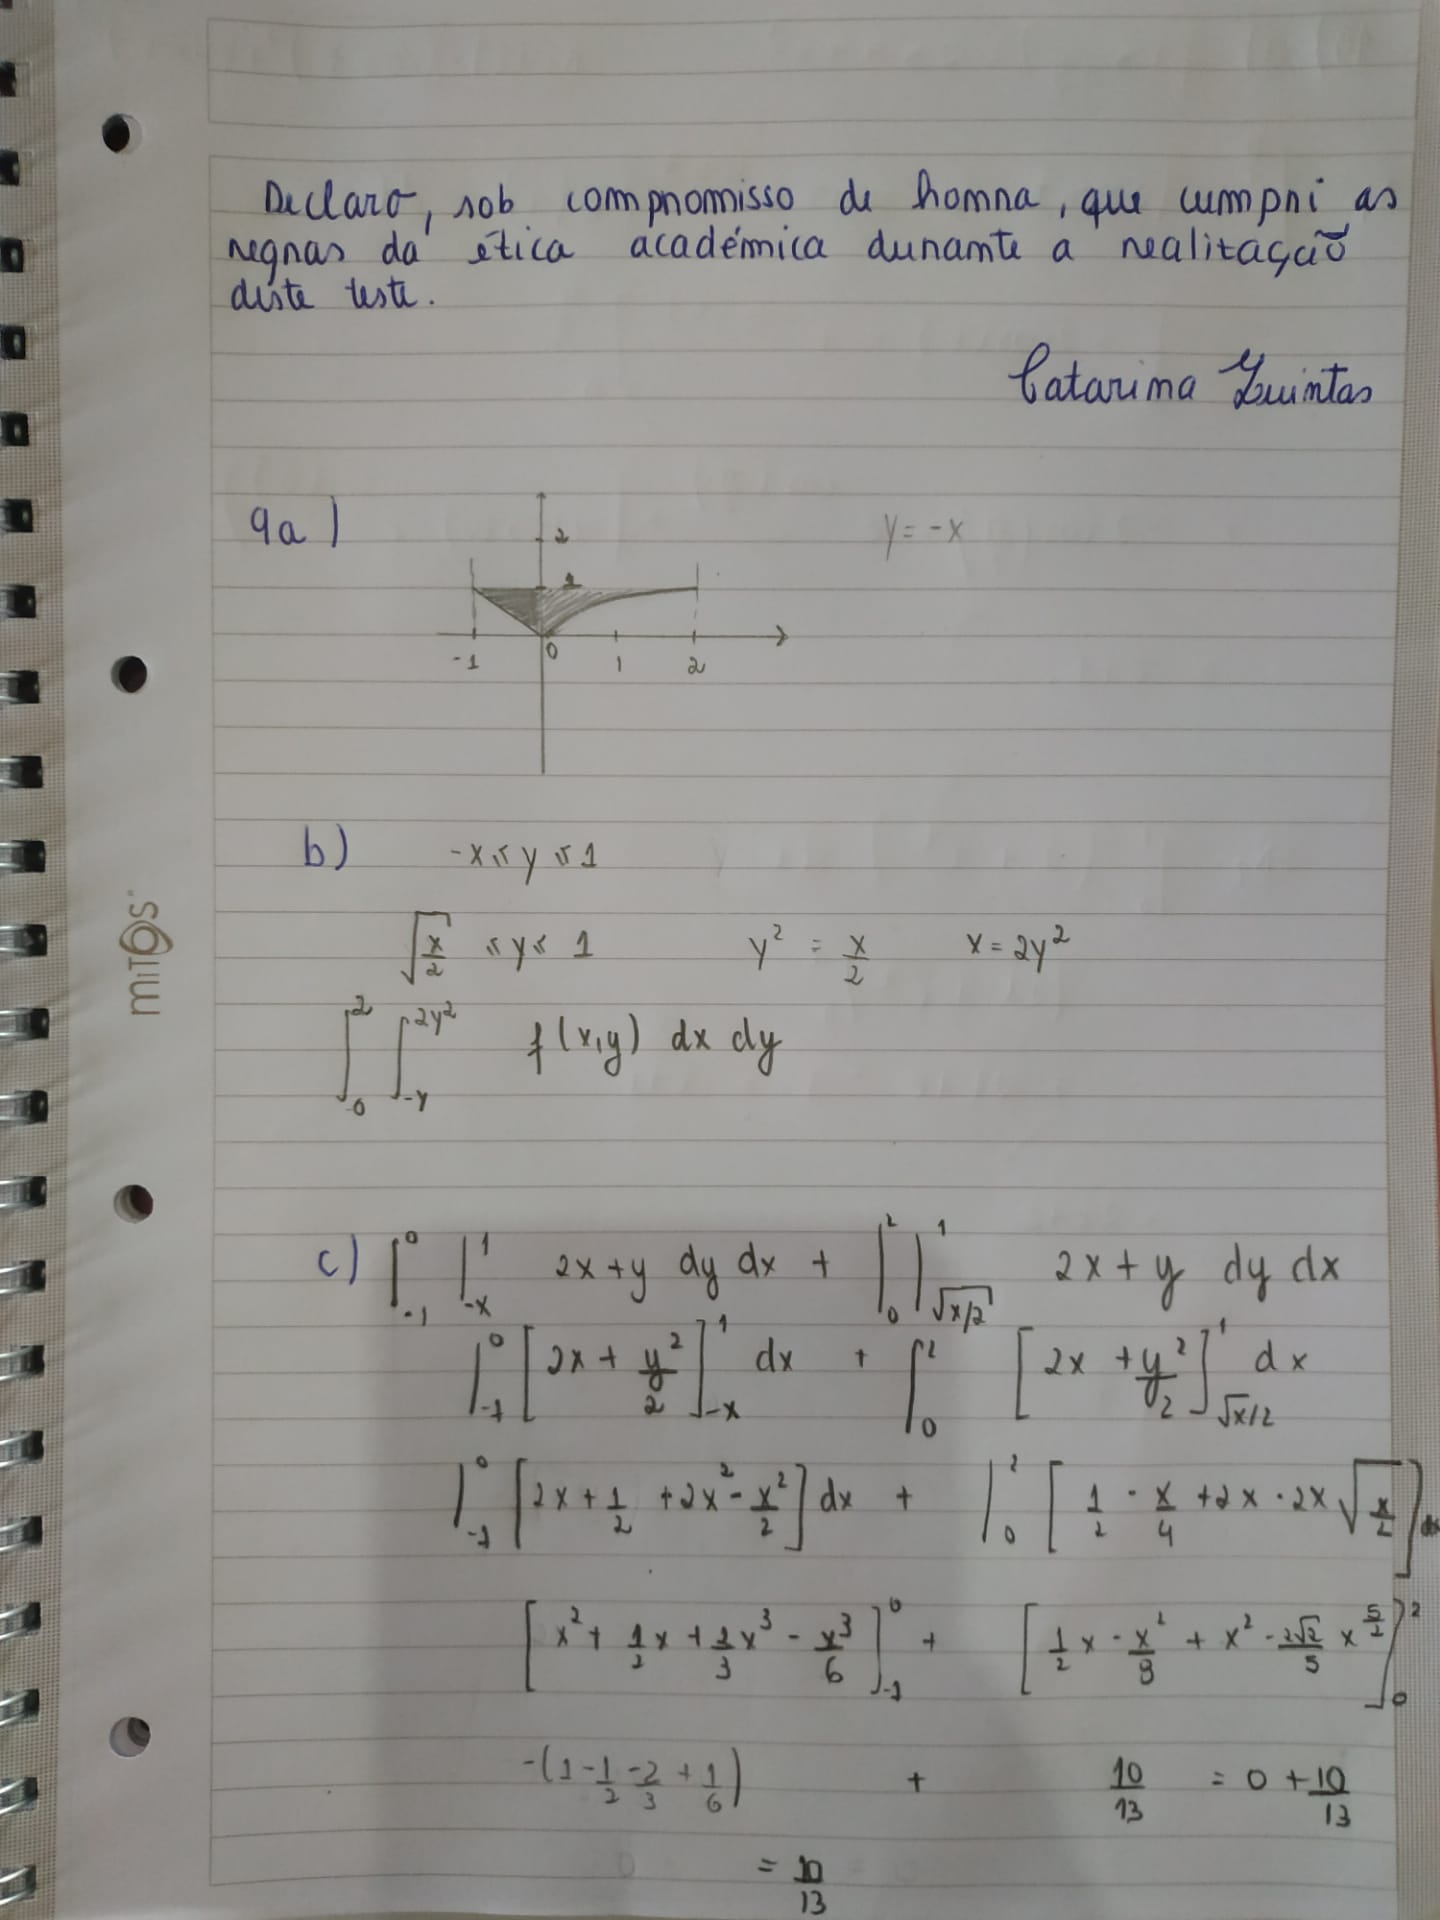 Declaro, sob compromisso de honra, que cumpri as
regras da ética académica durante a realização
deste teste.
Catarina Quintas
9a)
y = -x
2
1
-1 0 1 2
b) -x ≤ y ≤ 1
√(x/2) ≤ y ≤ 1 y² = x/2 x = 2y²
∫₀² ∫₋y^(2y²) f(x,y) dx dy
c) ∫₋₁⁰ ∫₋x¹ 2x + y dy dx + ∫₀² ∫_√(x/2)¹ 2x + y dy dx
∫₋₁⁰ [2x + y²/2]₋x¹ dx + ∫₀² [2x + y²/2]_√x/2¹ dx
∫₋₁⁰ [2x + 1/2 + 2x² - x²/2] dx + ∫₀² [1/2 - x/4 + 2x - 2x √(x/2)] dx
[x² + 1/2 x + 2/3 x³ - x³/6]₋₁⁰ + [1/2 x - x²/8 + x² - 2√2/5 x^(5/2)]₀²
-(1 - 1/2 - 2/3 + 1/6) + 10/13 = 0 + 10/13
= 10/13
MITOS